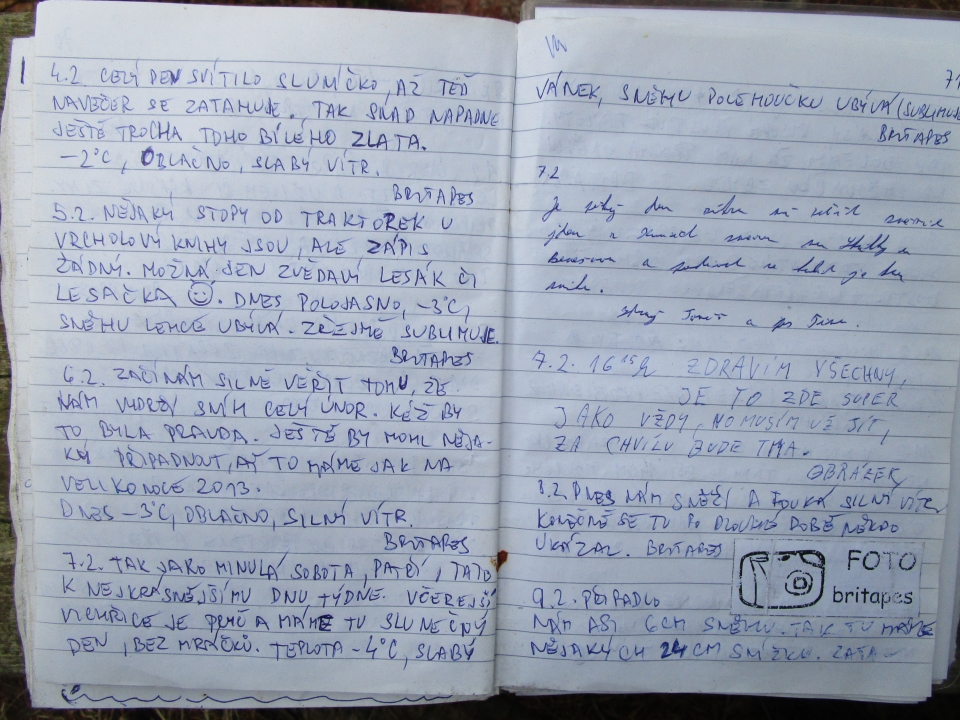 4.2. CELÝ DEN SVÍTILO SLUNÍČKO, AŽ TEĎ
NAVEČER SE ZATAHUJE. TAK SNAD NAPADNE
JEŠTĚ TROCHA TOHO BÍLÉHO ZLATA.
-2°C, OBLAČNO, SLABÝ VÍTR.
BRITAPES
5.2. NĚJAKÝ STOPY OD TRAKTOREK U
VRCHOLOVÝ KNIHY JSOU, ALE ZÁPIS
ŽÁDNÝ. MOŽNÁ JEN ZVĚDAVÍ LESÁK ČI
LESAČKA ☺. DNES POLOJASNO, -3°C,
SNĚHU LEHCE UBÝVÁ. ZŘEJMĚ SUBLIMUJE.
BRITAPES
6.2. ZAČÍNÁM SILNĚ VĚŘIT TOMU, ŽE
NÁM VYDRŽÍ SNÍH CELÝ ÚNOR. KÉŽ BY
TO BYLA PRAVDA. JEŠTĚ BY MOHL NĚJA-
KÝ PŘIPADNOUT, AŤ TO MÁME JAK NA
VELIKONOCE 2013.
DNES -3°C, OBLAČNO, SILNÍ VÍTR.
BRITAPES
7.2. TAK JAKO MINULÁ SOBOTA, PATŘÍ, TATO
K NEJKRÁSNĚJŠÍMU DNU TÝDNE. VČEREJŠÍ
VICHŘICE JE PRYČ A MÁME TU SLUNEČNÝ
DEN, BEZ MRÁČKŮ. TEPLOTA -4°C, SLABÝ
71
VÁNEK, SNĚHU POLEHOUČKU UBÝVÁ (SUBLIMUJE
BRITAPES
7.2
Je den
jden a znovu
a je
7.2. 16 15 h ZDRAVÍM VŠECHNY,
JE TO ZDE SUPER
JAKO VŽDY, NO MUSÍM UŽ JÍT,
ZA CHVÍLU BUDE TMA.
OBRÁZEK
8.2. DNES NÁM SNĚŽÍ A FOUKÁ SILNÍ VÍTR
KONEČNĚ SE TU PO DLOUHÉ DOBĚ NĚKDO
UKÁZAL. BRITAPES
FOTO
britapes
9.2. PŘIPADLO
NÁM ASI 6CM SNĚHU. TAK TU MÁME
NĚJAKÝCH 24CM SNÍŽKU. ZATA-